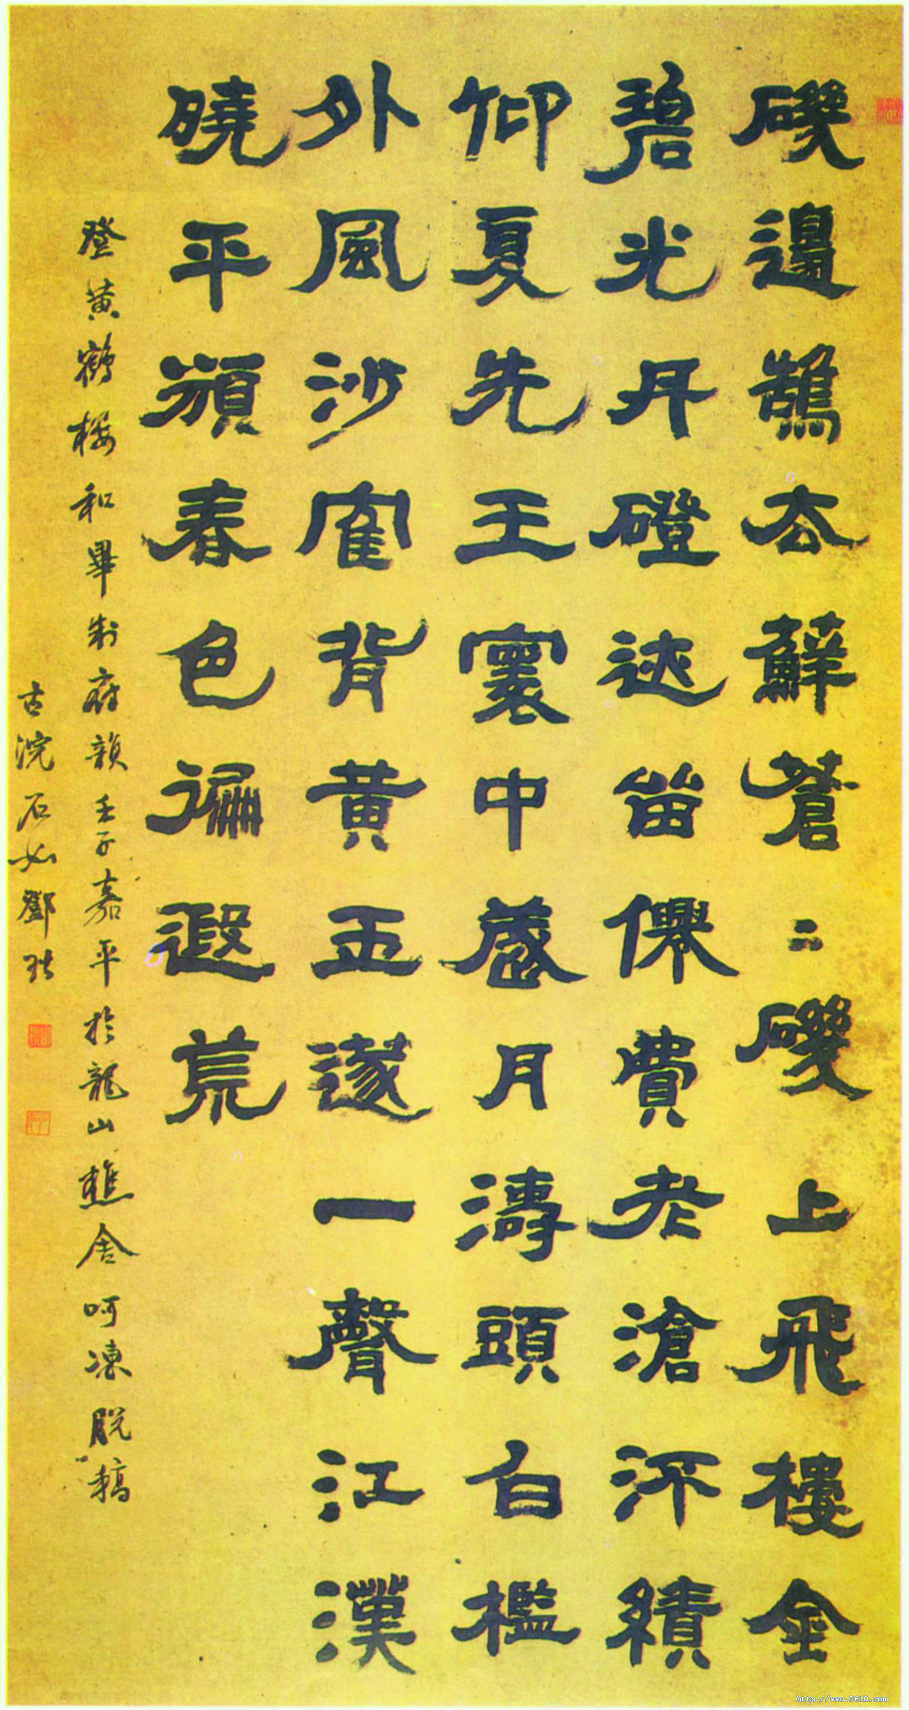 磯邊鵠去蘚蒼〻磯上飛樓金
碧光丹磴迹留僊費老滄績
仰夏先王寰中歲月濤頭白檻
外風沙隺背黃玉篴一聲江漢
曉平春色徧遐荒
登黃鶴樓和畢制府韻壬子嘉平於龍山樵舍呵凍脫稿
古浣石如鄧琰
http://www.9610.com